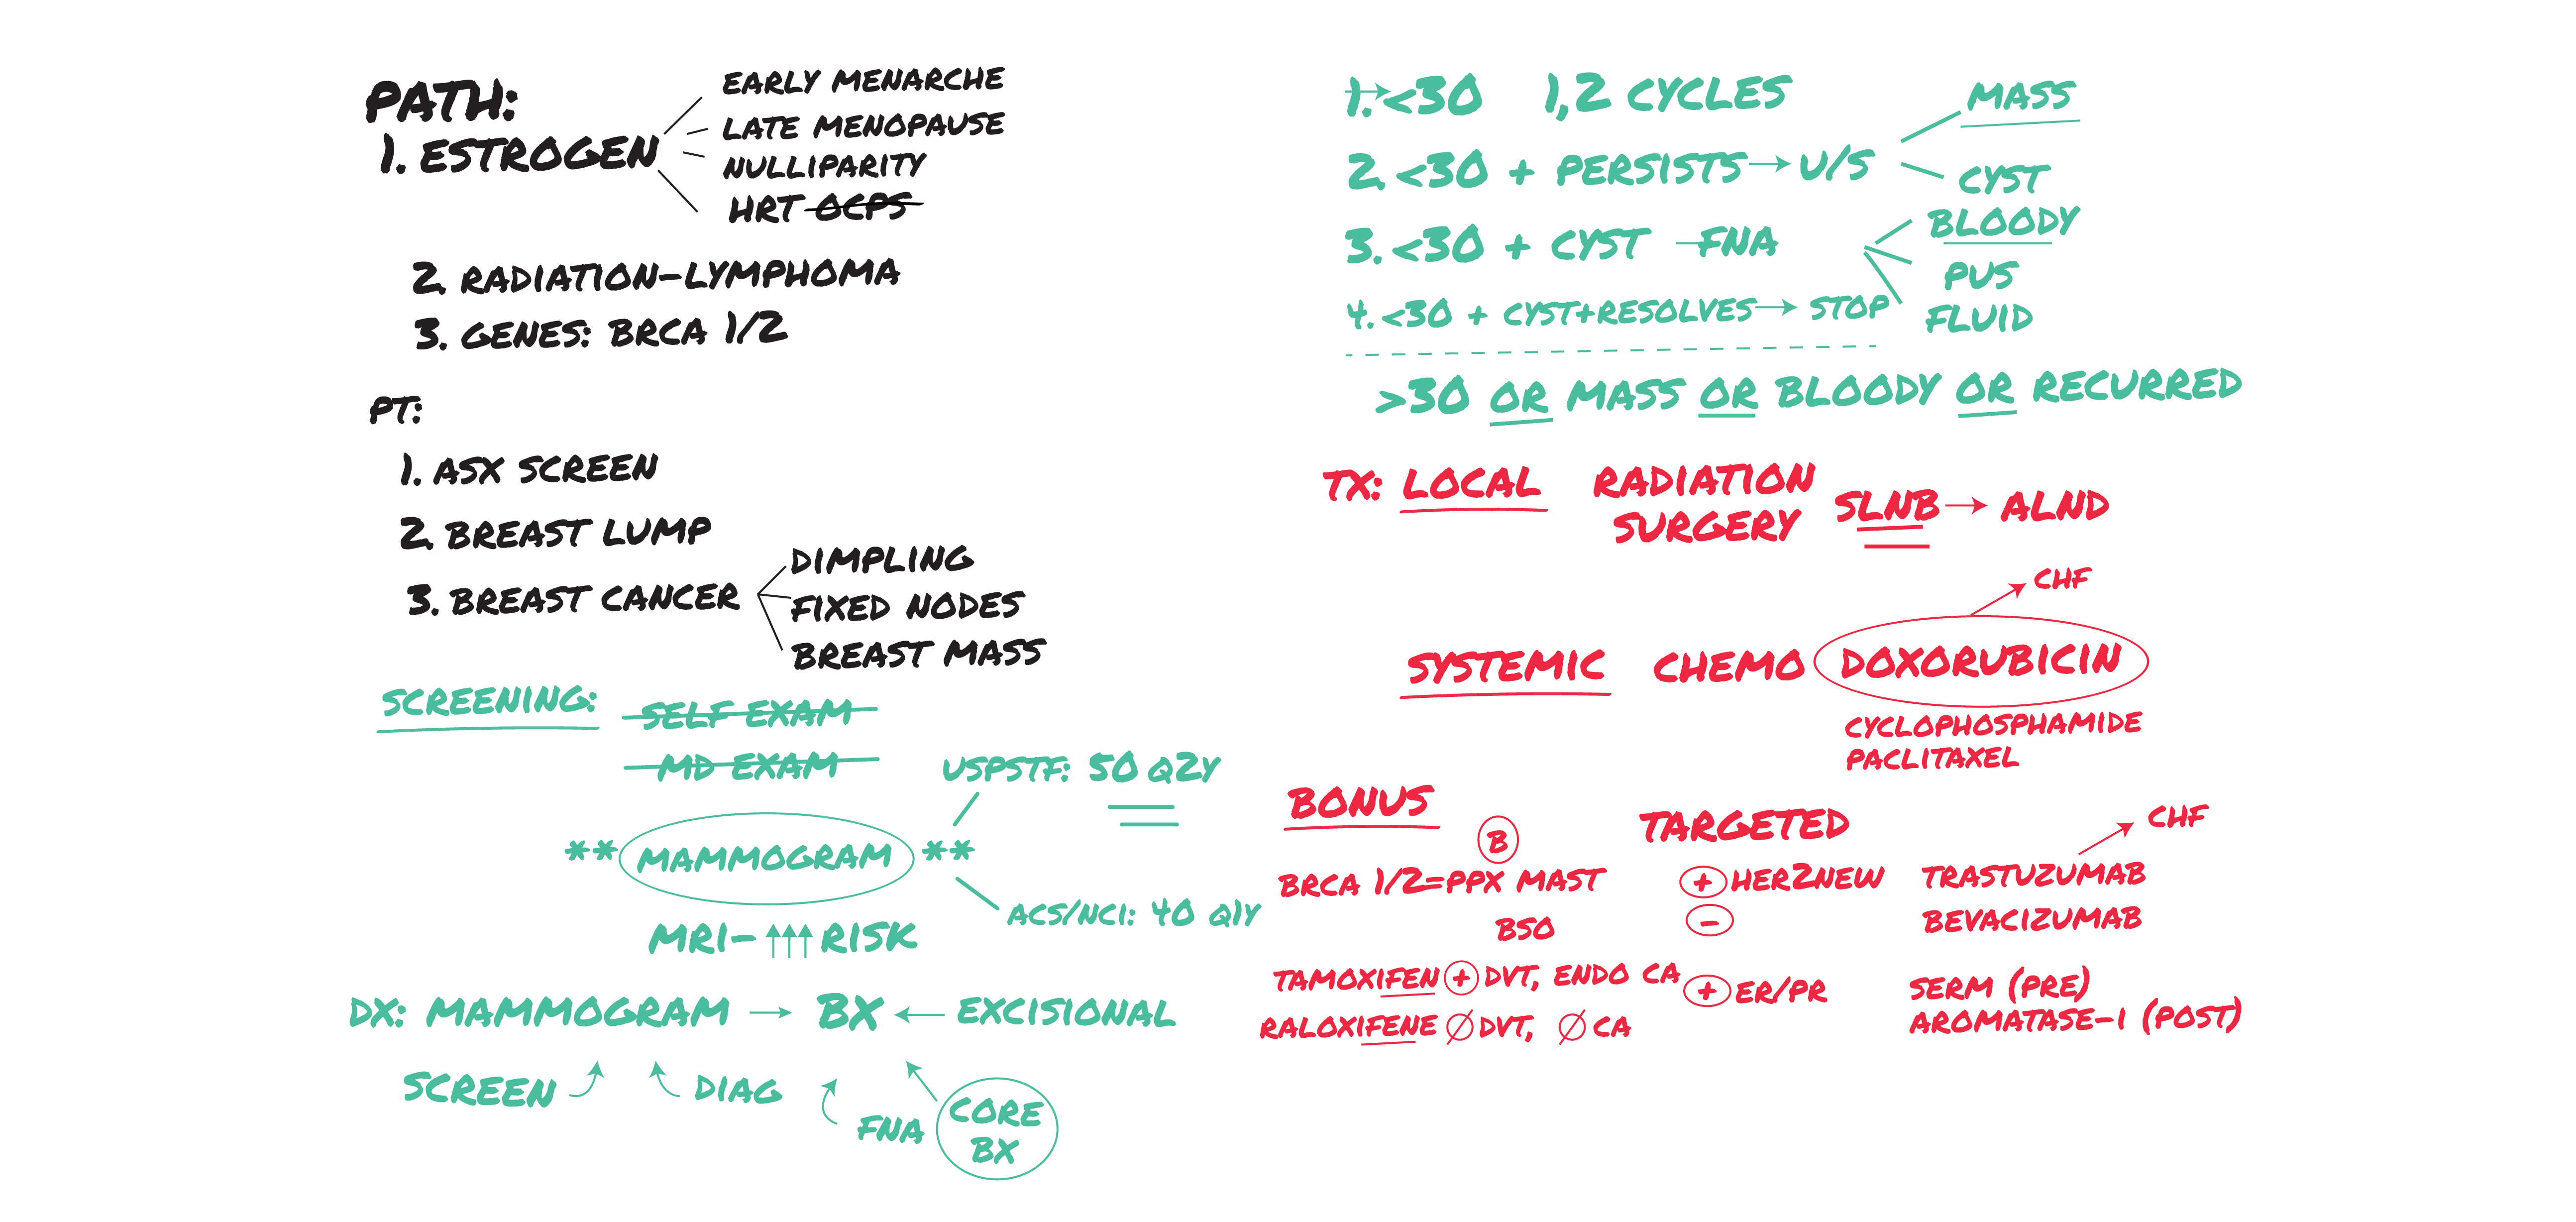 PATH:
1. ESTROGEN
EARLY MENARCHE
LATE MENOPAUSE
NULLIPARITY
HRT OCPS
2. RADIATION-LYMPHOMA
3. GENES: BRCA 1/2
PT:
1. ASX SCREEN
2. BREAST LUMP
3. BREAST CANCER
DIMPLING
FIXED NODES
BREAST MASS
SCREENING:
SELF EXAM
MD EXAM
** MAMMOGRAM **
USPSTF: 50 Q2Y
ACS/NCI: 40 Q1Y
MRI- ↑↑↑ RISK
DX: MAMMOGRAM → BX ← EXCISIONAL
SCREEN
DIAG
FNA
CORE
BX
1. <30 1,2 CYCLES
2. <30 + PERSISTS → U/S
MASS
CYST
3. <30 + CYST → FNA
BLOODY
PUS
FLUID
4. <30 + CYST+RESOLVES → STOP
>30 OR MASS OR BLOODY OR RECURRED
TX: LOCAL
RADIATION
SURGERY
SLNB → ALND
SYSTEMIC CHEMO DOXORUBICIN
CHF
CYCLOPHOSPHAMIDE
PACLITAXEL
BONUS
B
BRCA 1/2=PPX MAST
BSO
TAMOXIFEN + DVT, ENDO CA
RALOXIFENE Ø DVT, Ø CA
TARGETED
+ HER2NEW TRASTUZUMAB
CHF
- BEVACIZUMAB
+ ER/PR
SERM (PRE)
AROMATASE-I (POST)